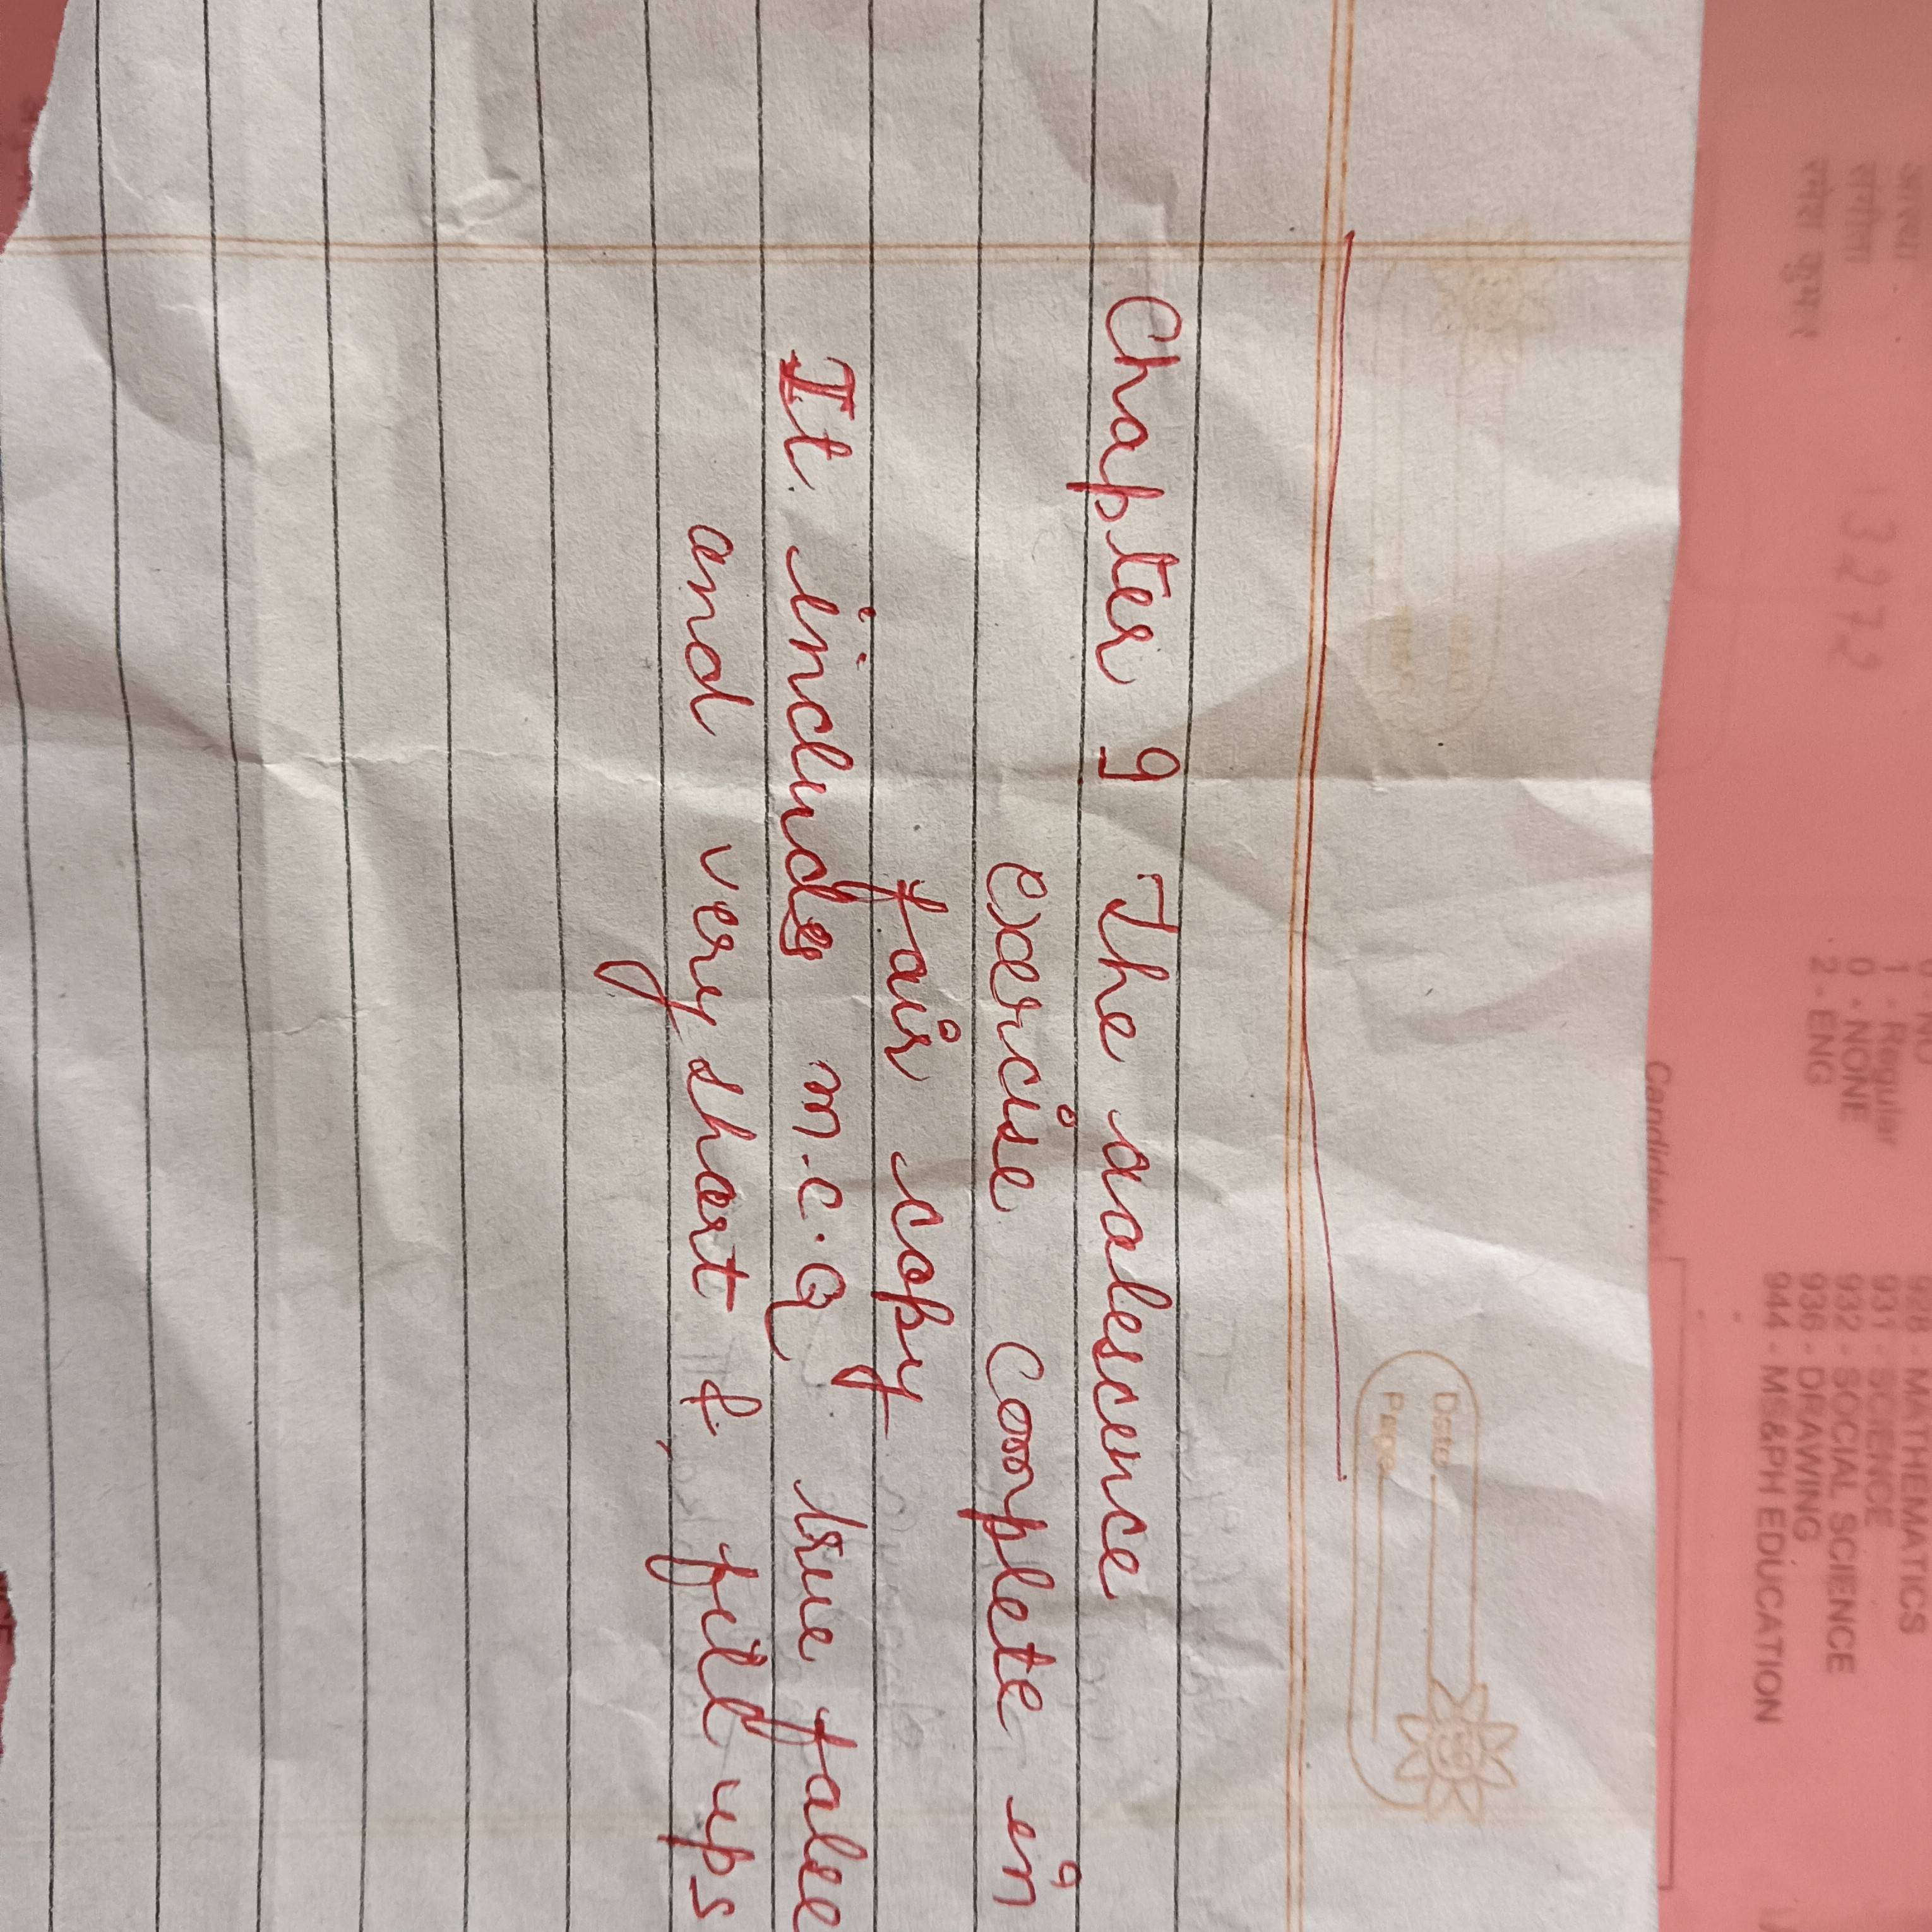 Chapter 9 The adalescence
Exercise Complete in
fair copy
It includes m.c.Q true false
and very short & fill ups
Date
Page
13272
1 - Regular
0 - NONE
2 - ENG
Candidate
928 - MATHEMATICS
931 - SCIENCE
932 - SOCIAL SCIENCE
936 - DRAWING
944 - MS&PH EDUCATION